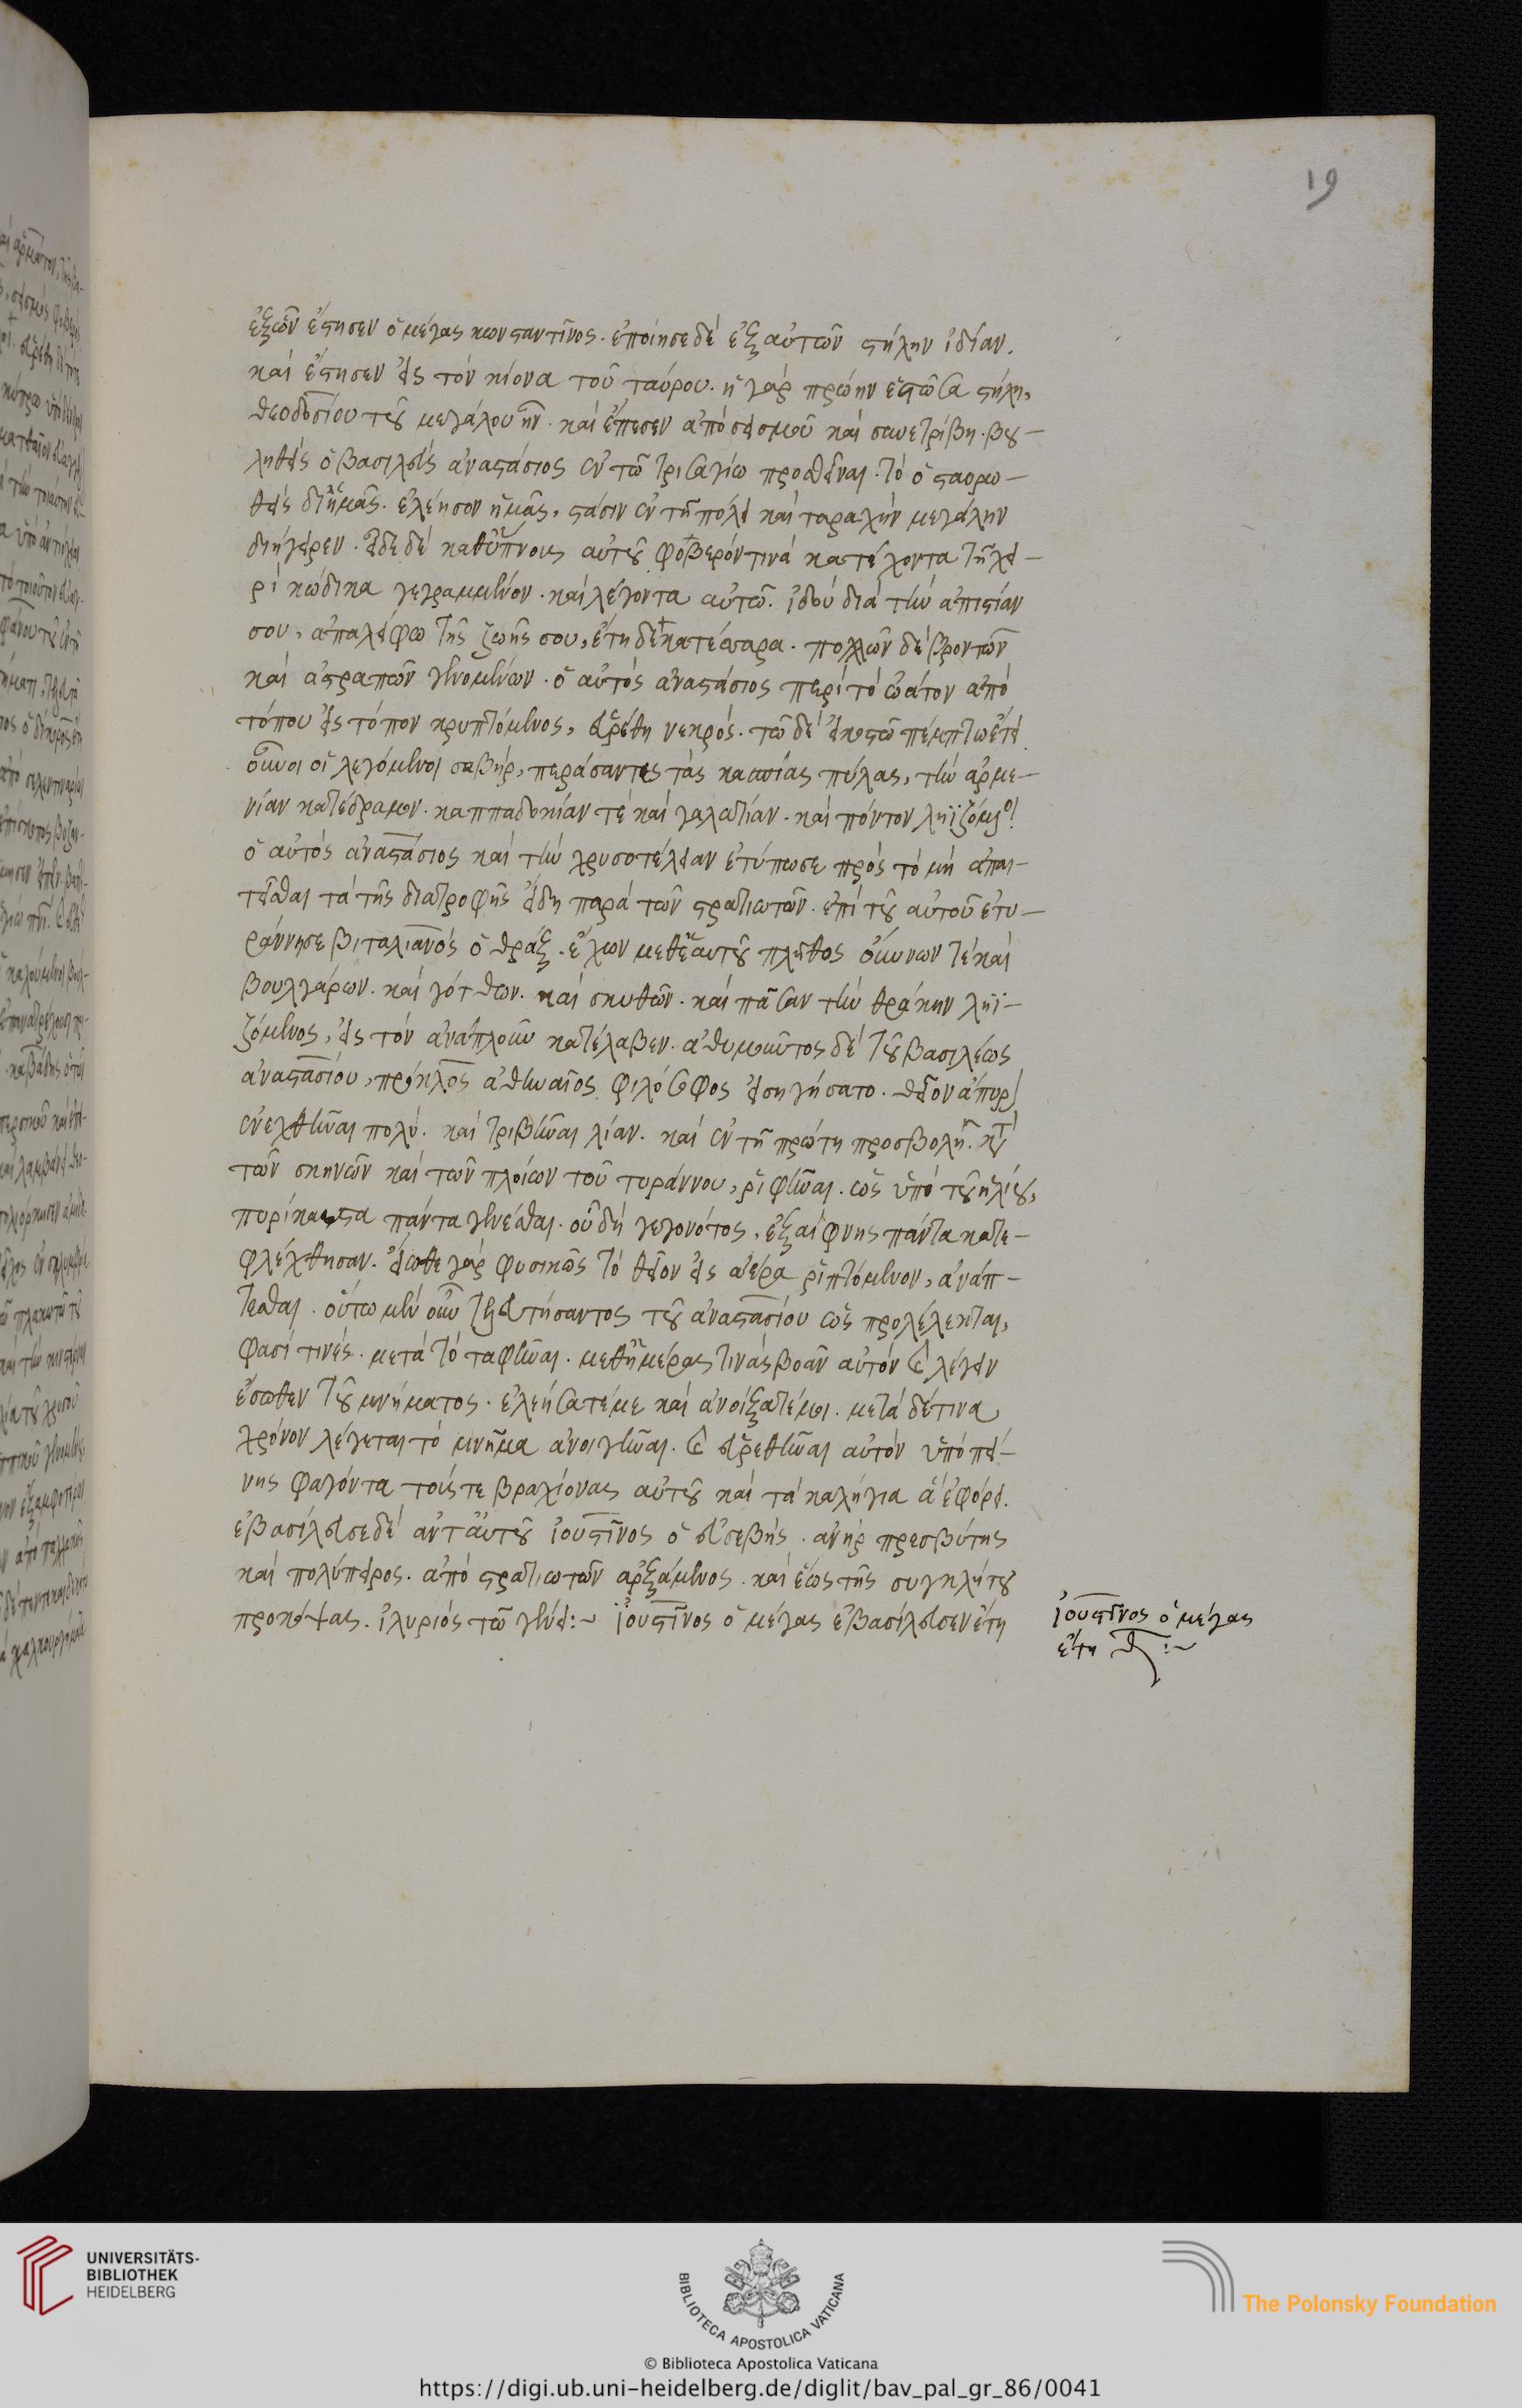 19
ἐξ ὧν ἔστησεν ὁ μέγας κωνσταντῖνος. ἐποίησε δὲ ἐξ αὐτῶν στήλην ἰδίαν.
καὶ ἔστησεν εἰς τὸν κίονα τοῦ ταύρου. ἡ γὰρ πρώην ἑστῶσα στήλη,
θεοδοσίου τοῦ μεγάλου ἦν. καὶ ἔπεσεν ἀπὸ σεισμοῦ καὶ συνετρίβη. βου-
ληθεὶς ὁ βασιλεὺς ἀναστάσιος ἐν τῶ τρισαγίω προσθεῖναι. τὸ ὁ σταυρω-
θεὶς δι' ἡμᾶς. ἐλέησον ἡμᾶς, στάσιν ἐν τῆ πόλει καὶ ταραχὴν μεγάλην
διήγειρεν. εἶδε δὲ καθ' ὕπνους αὐτοῦ φοβερόν τινα κατέχοντα τῆ χει-
ρὶ κώδικα γεγραμμένον. καὶ λέγοντα αὐτῶ. ἰδοὺ διὰ τὴν ἀπιστίαν
σου, ἀπαλείφω τῆς ζωῆς σου, ἔτη δεκατέσσαρα. πολλῶν δὲ βροντῶν
καὶ ἀστραπῶν γενομένων. ὁ αὐτὸς ἀναστάσιος περὶ τὸ ὠάτον ἀπὸ
τόπου εἰς τόπον κρυπτόμενος, εὑρέθη νεκρός. τῶ δὲ εἰκοστῶ πέμπτω ἔτει
οὖννοι οἱ λεγόμενοι σαβὴρ, περάσαντες τὰς κασπίας πύλας, τὴν ἀρμε-
νίαν κατέδραμον. καππαδοκίαν τὲ καὶ γαλατίαν. καὶ πόντον ληϊζόμενοι
ὁ αὐτὸς ἀναστάσιος καὶ τὴν χρυσοτέλειαν ἐτύπωσε πρὸς τὸ μὴ ἀπαι-
τεῖσθαι τὰ τῆς διατροφῆς εἴδη παρὰ τῶν στρατιωτῶν. ἐπὶ τοῦ αὐτοῦ ἐτυ-
ράννησε βιταλιανὸς ὁ θράξ. ἔχων μεθ' ἑαυτοῦ πλῆθος οὔννων τὲ καὶ
βουλγάρων. καὶ γότθων. καὶ σκυθῶν. καὶ πᾶσαν τὴν θράκην ληϊ-
ζόμενος, εἰς τὸν ἀνάπλουν κατέλαβεν. ἀθυμοῦντος δὲ τοῦ βασιλέως
ἀναστασίου, πρόκλος ἀθηναῖος φιλόσοφος εἰσηγήσατο. θεῖον ἄπυρ
ἐνεχθῆναι πολύ. καὶ τριβῆναι λίαν. καὶ ἐν τῆ πρώτη προσβολῆ. κατὰ
τῶν σκηνῶν καὶ τῶν πλοίων τοῦ τυράννου, ῥιφῆναι. ὡς ὑπὸ τοῦ ἡλίου,
πυρίκαυστα πάντα γενέσθαι. οὗ δὴ γεγονότος, ἐξαίφνης πάντα κατε-
φλέχθησαν. εἴωθε γὰρ φυσικῶς τὸ θεῖον εἰς ἀέρα ῥιπτόμενον, ἀνάπ-
τεσθαι. οὕτω μὲν οὖν τελευτήσαντος τοῦ ἀναστασίου ὡς προλέλεκται,
φασί τινὲς. μετὰ τὸ ταφῆναι. μεθ' ἡμέρας τινὰς βοᾶν αὐτὸν καὶ λέγειν
ἔσωθεν τοῦ μνήματος. ἐλεήσατέ με καὶ ἀνοίξατέ μοι. μετὰ δέ τινα
χρόνον λέγεται τὸ μνῆμα ἀνοιγῆναι. καὶ εὑρεθῆναι αὐτὸν ὑπὸ πεί-
νης φαγόντα τούς τε βραχίονας αὐτοῦ καὶ τὰ καλήγια ἃ ἐφόρει.
ἐβασίλευσε δὲ ἀντ' αὐτοῦ ἰουστῖνος ὁ εὐσεβής. ἀνὴρ πρεσβύτης
καὶ πολύπειρος. ἀπὸ στρατιωτῶν ἀρξάμενος. καὶ ἕως τῆς συγκλήτου
προκόψας. ἰλυριὸς τῶ γένει:~ ἰουστῖνος ὁ μέγας ἐβασίλευσεν ἔτη
ἰουστῖνος ὁ μέγας
ἔτη θ:~
UNIVERSITÄTS-
BIBLIOTHEK
HEIDELBERG
BIBLIOTECA APOSTOLICA VATICANA
The Polonsky Foundation
© Biblioteca Apostolica Vaticana
https://digi.ub.uni-heidelberg.de/diglit/bav_pal_gr_86/0041